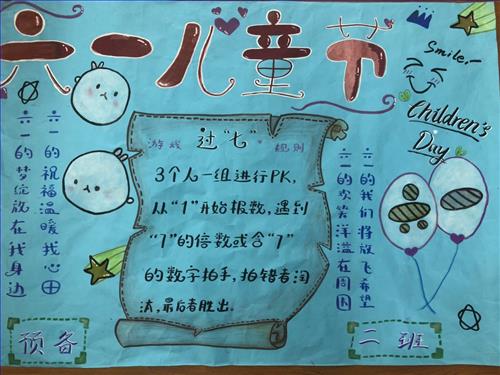 六一儿童节
Smile,~
Children's
Day
六一的祝福温暖我心田
六一的梦绽放在我身边
游戏 过“七” 规则
3个人一组进行PK,
从“1”开始报数,遇到
“7”的倍数或含“7”
的数字拍手,拍错者淘
汰,最后者胜出.
六一的我们将放飞希望
六一的欢笑洋溢在周围
预备
二班